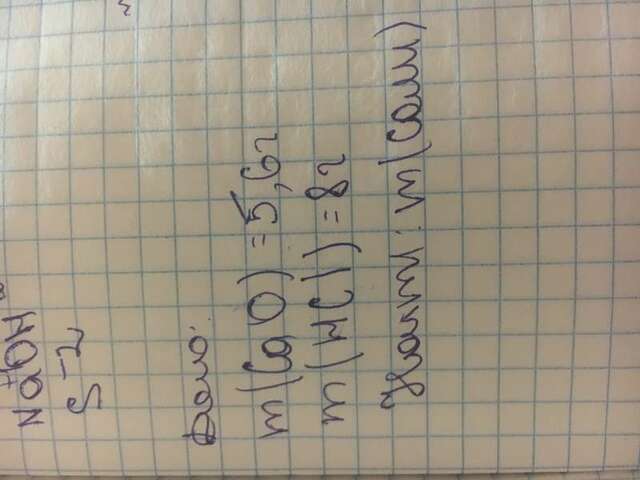 NaOH
S⁻²
Дано:
m(CaO) = 5,6г
m(HCl) = 8г
Найти: m(соли)